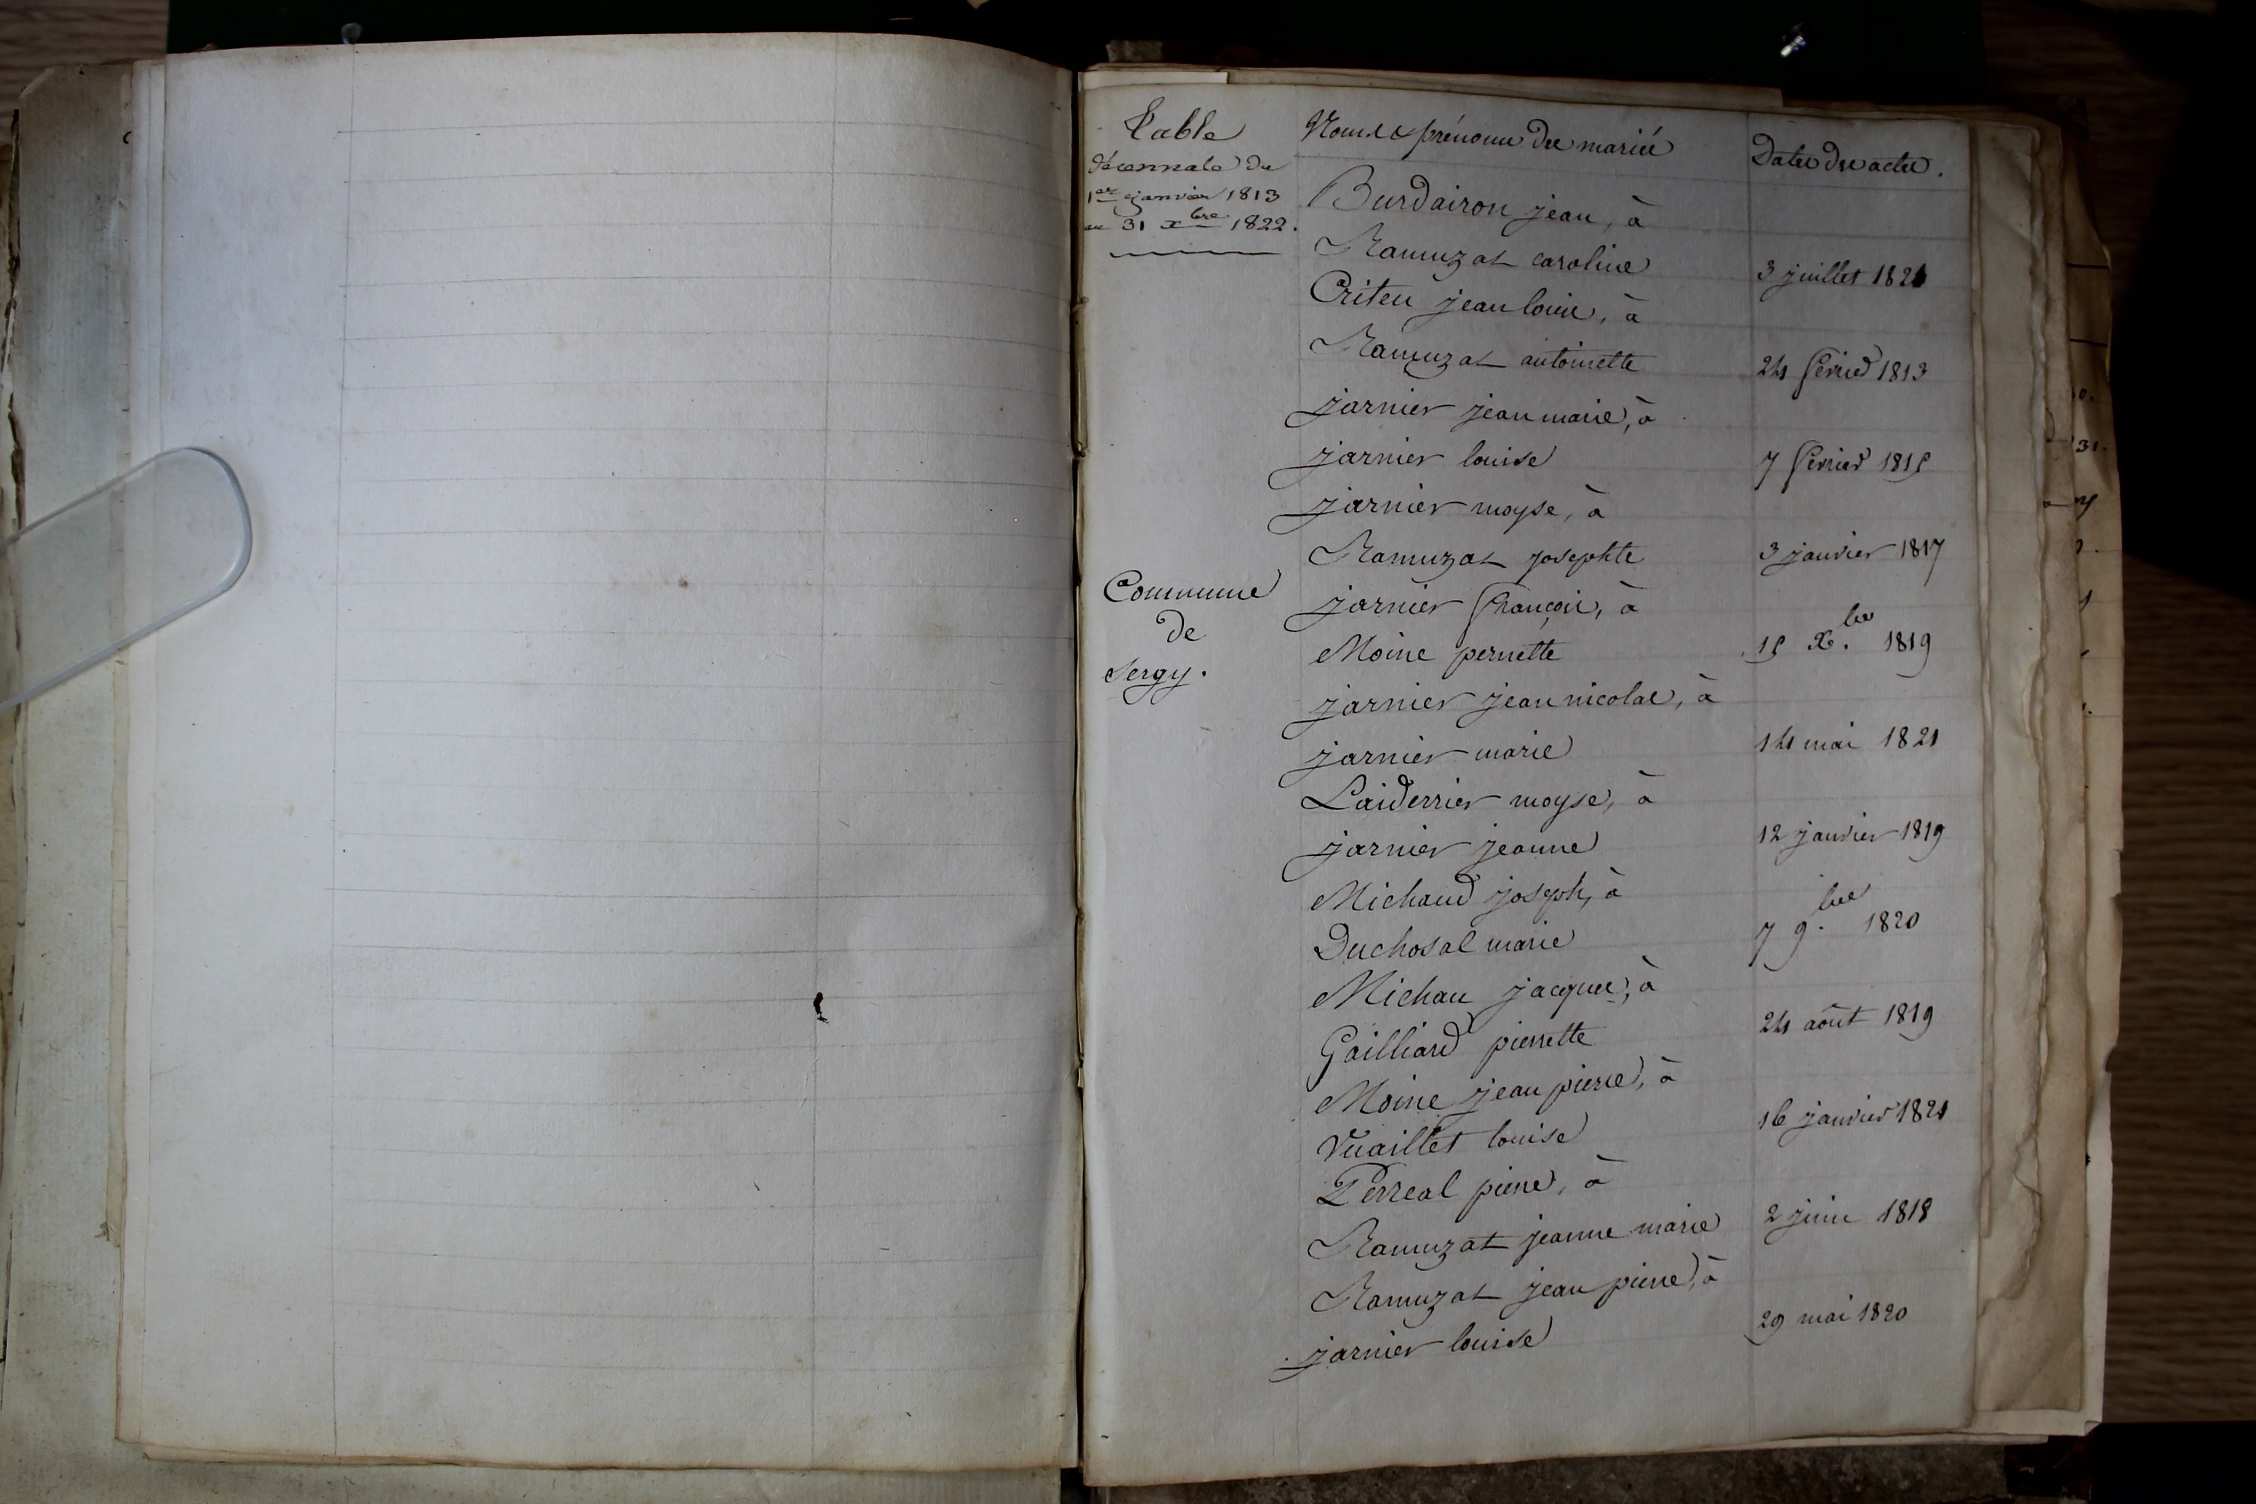 Table
décennale du
1er janvier 1813
au 31 xbre 1822.
Commune
de
Sergy.
Noms & prénoms des mariés
Dates des actes.
Burdairon jean, à
Ramuzat caroline 3 juillet 1821
Criteu jean louis, à
Ramuzat antoinette 24 février 1813
jarnier jean marie, à
jarnier louise 7 février 1815
jarnier moyse, à
Ramuzat josephte 3 janvier 1817
jarnier françois, à
Moine pernette 15 Xbre 1819
jarnier jean nicolas, à
jarnier marie 14 mai 1821
Laiderrier moyse, à
jarnier jeanne 12 janvier 1819
Michaud joseph, à
Duchosal marie 7 9bre 1820
Michau jacques, à
Gailliard pierrette 24 août 1819
Moine jean pierre, à
Vuaillet louise 16 janvier 1821
Perreal pierre, à
Ramuzat jeanne marie 2 juin 1818
Ramuzat jean pierre, à
jarnier louise 29 mai 1820